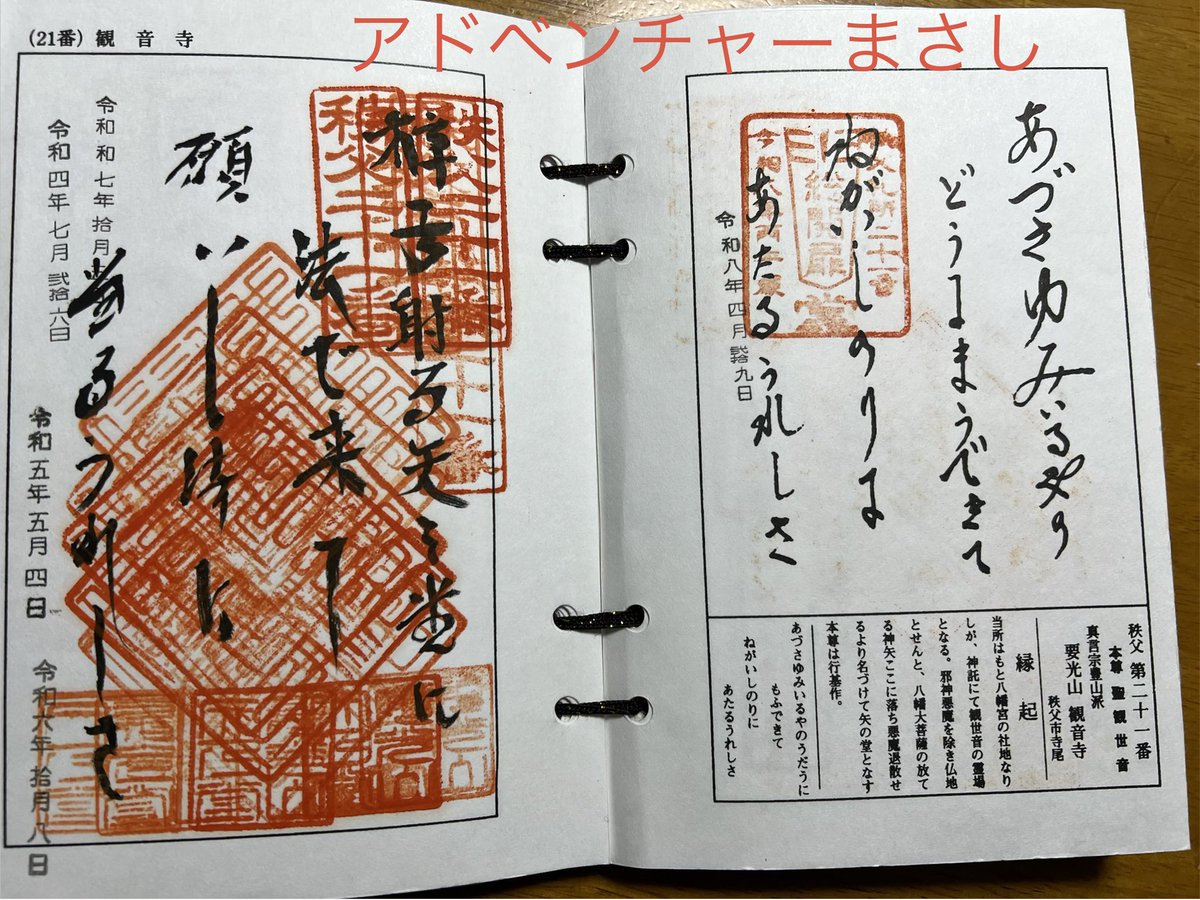 アドベンチャーまさし
あづさゆみいるやの
どうにまうできて
ねがいしのりに
あたるうれしさ
令和八年四月弐拾九日
秩父 第二十一番
本尊 聖観世音
真言宗豊山派
要光山 観音寺
秩父市寺尾
縁起
当所はもと八幡宮の社地なり
しが、神託にて観世音の霊場
となる。邪神悪魔を除き仏地
とせんと、八幡大菩薩の放て
る神矢ここに落ち悪魔退散せ
るより名づけて矢の堂となす
本尊は行基作。
あづさゆみいるやのうだうに
もふできて
ねがいしのりに
あたるうれしさ
(21番) 観音寺
梓弓射る矢之堂に
法で来て
願いし法に
當るうれしさ
令和七年拾月
令和四年七月弐拾六日
令和五年五月四日
令和六年拾月八日